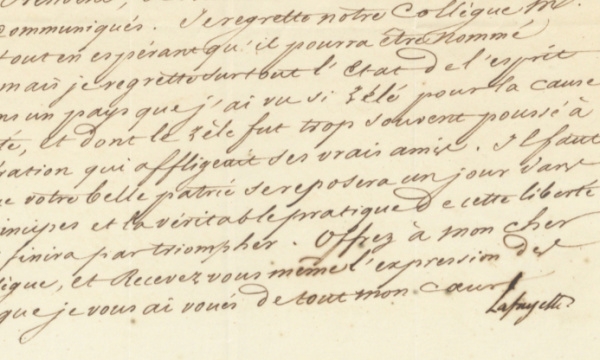 communiqués. Je regrette notre Collègue M.
tout en espérant qu'il pourra être nommé
mais je regrette surtout l'état de l'esprit
un pays que j'ai vu si zélé pour la cause
té, et dont le zèle fut trop souvent poussé à
ration qui affligeait ses vrais amis. Il faut
e votre belle patrie se reposera un jour dans
incipes et la véritable pratique de cette liberté
finira par triompher. Offrez à mon cher
ique, et Recevez vous même l'expression des
que je vous ai voués de tout mon cœur
Lafayette